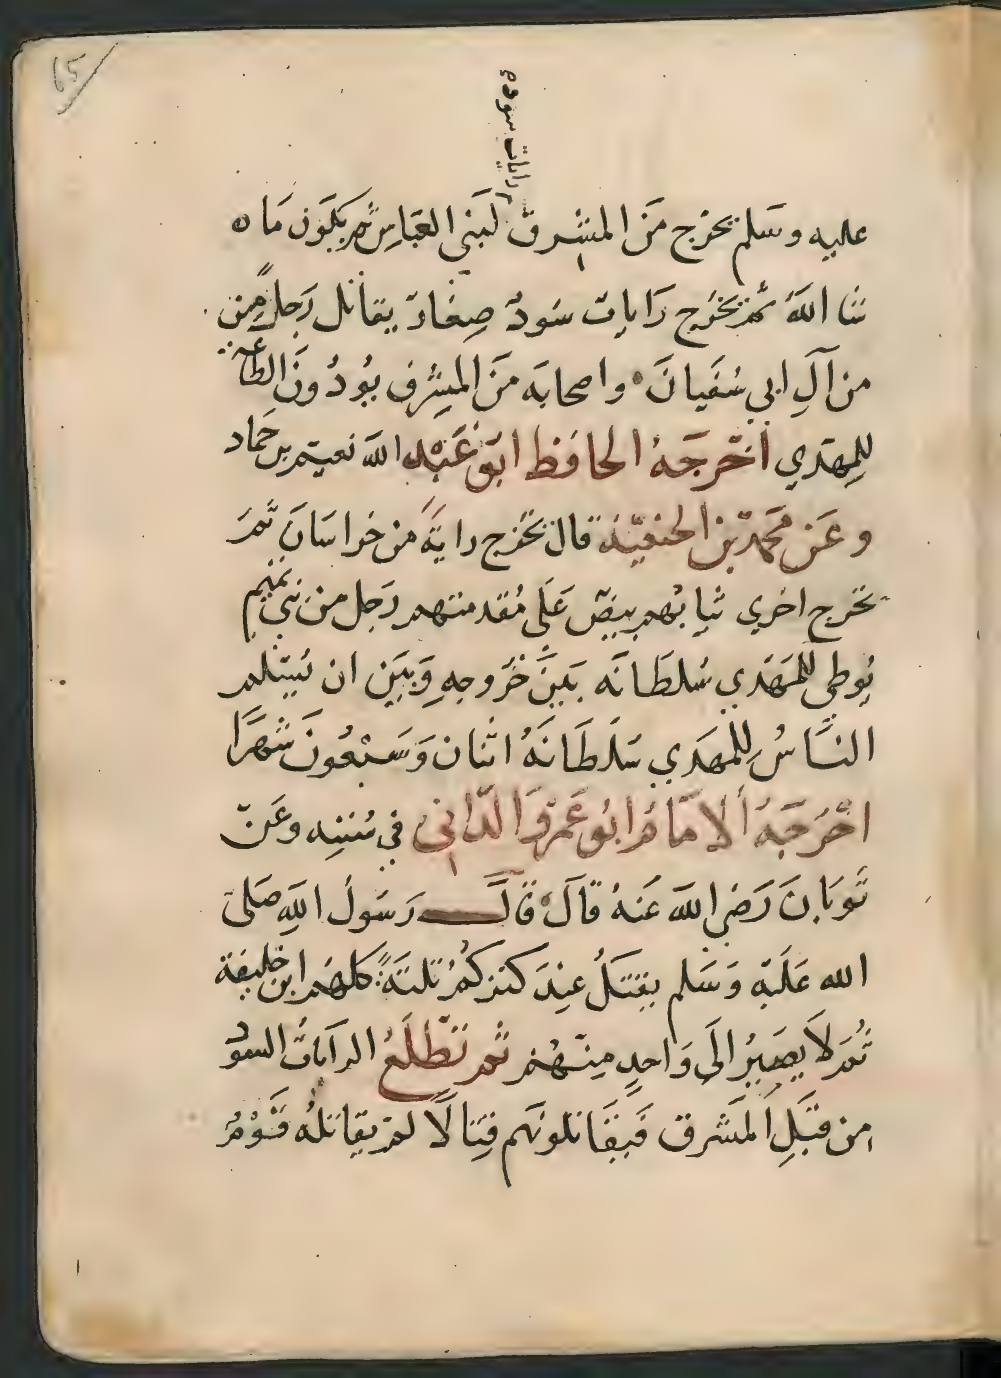 65
رايات سوده
عليه وسلم يخرج من المشرق لبني العباس ثم يكون ما
شا الله ثم يخرج رايات سود صغار يقاتل رجلا من
من آل ابي سفيان واصحابه من المشرق يودون الطاعة
للمهدي اخرجه الحافظ ابو عبد الله نعيم بن حماد
وعن محمد بن الحنفية قال تخرج راية من خراسان ثم
تخرج اخري ثيابهم بيض على مقدمتهم رجل من بني تميم
يوطي للمهدي سلطانه بين خروجه وبين ان يسلم
الناس للمهدي سلطانه اثنان وسبعون شهرا
اخرجه الامام ابو عمرو الداني في سننه وعن
ثوبان رضي الله عنه قال قال رسول الله صلى
الله عليه وسلم يقتتل عند كنزكم ثلثة كلهم ابن خليفة
ثم لا يصير الى واحد منهم ثم تطلع الرايات السود
من قبل المشرق فيقاتلونهم قتالا لم يقاتله قوم